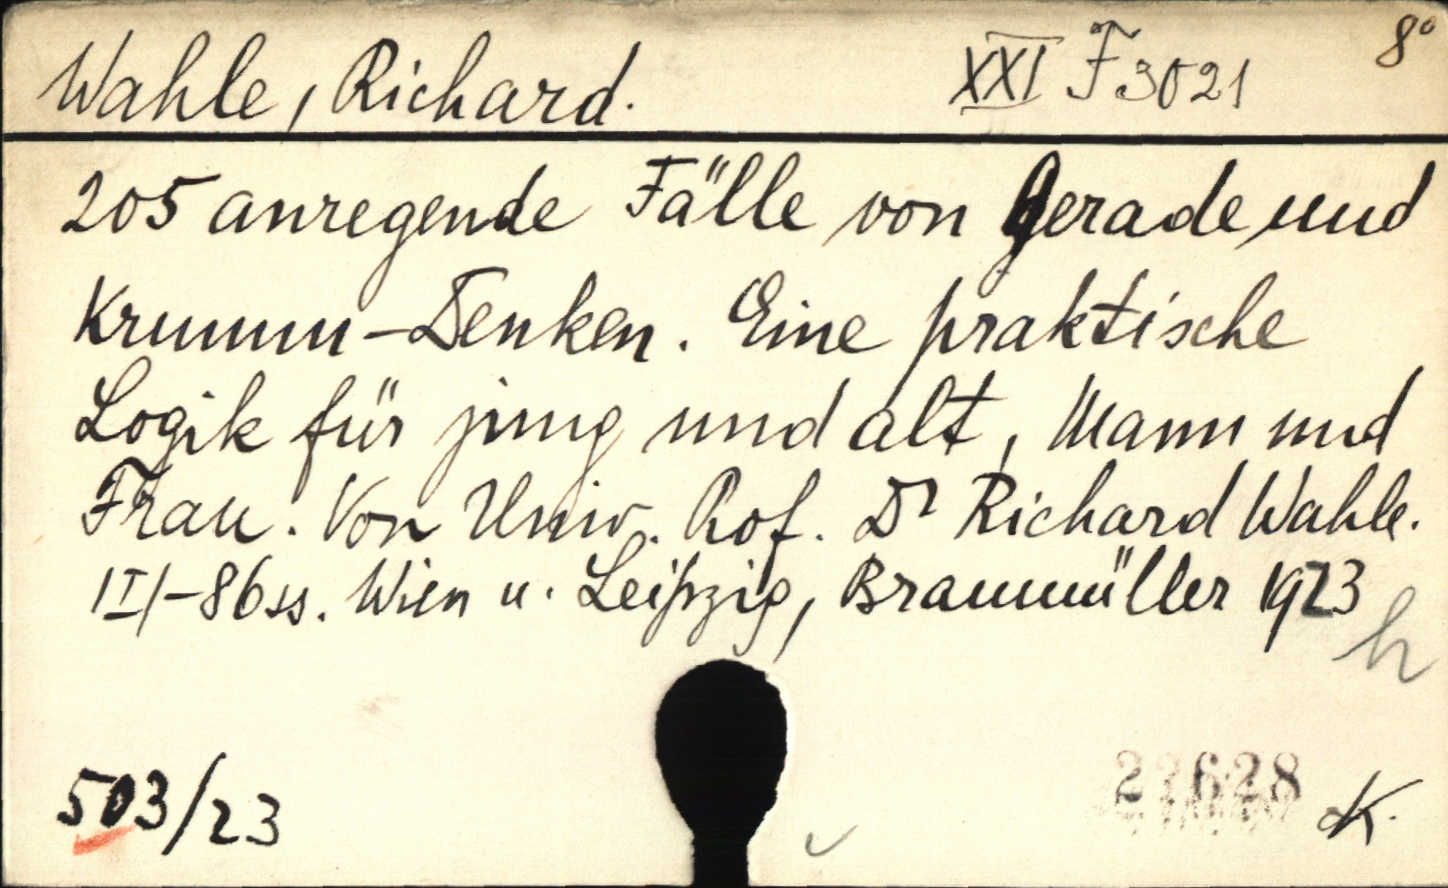 Wahle, Richard. XXI F 3021 8°
205 anregende Fälle von Gerade und
Krumm-Denken. Eine praktische
Logik für jung und alt, Mann und
Frau. Von Univ. Prof. Dr Richard Wahle.
Wien u. Leipzig, Braumüller 1923
h
503/23 K.